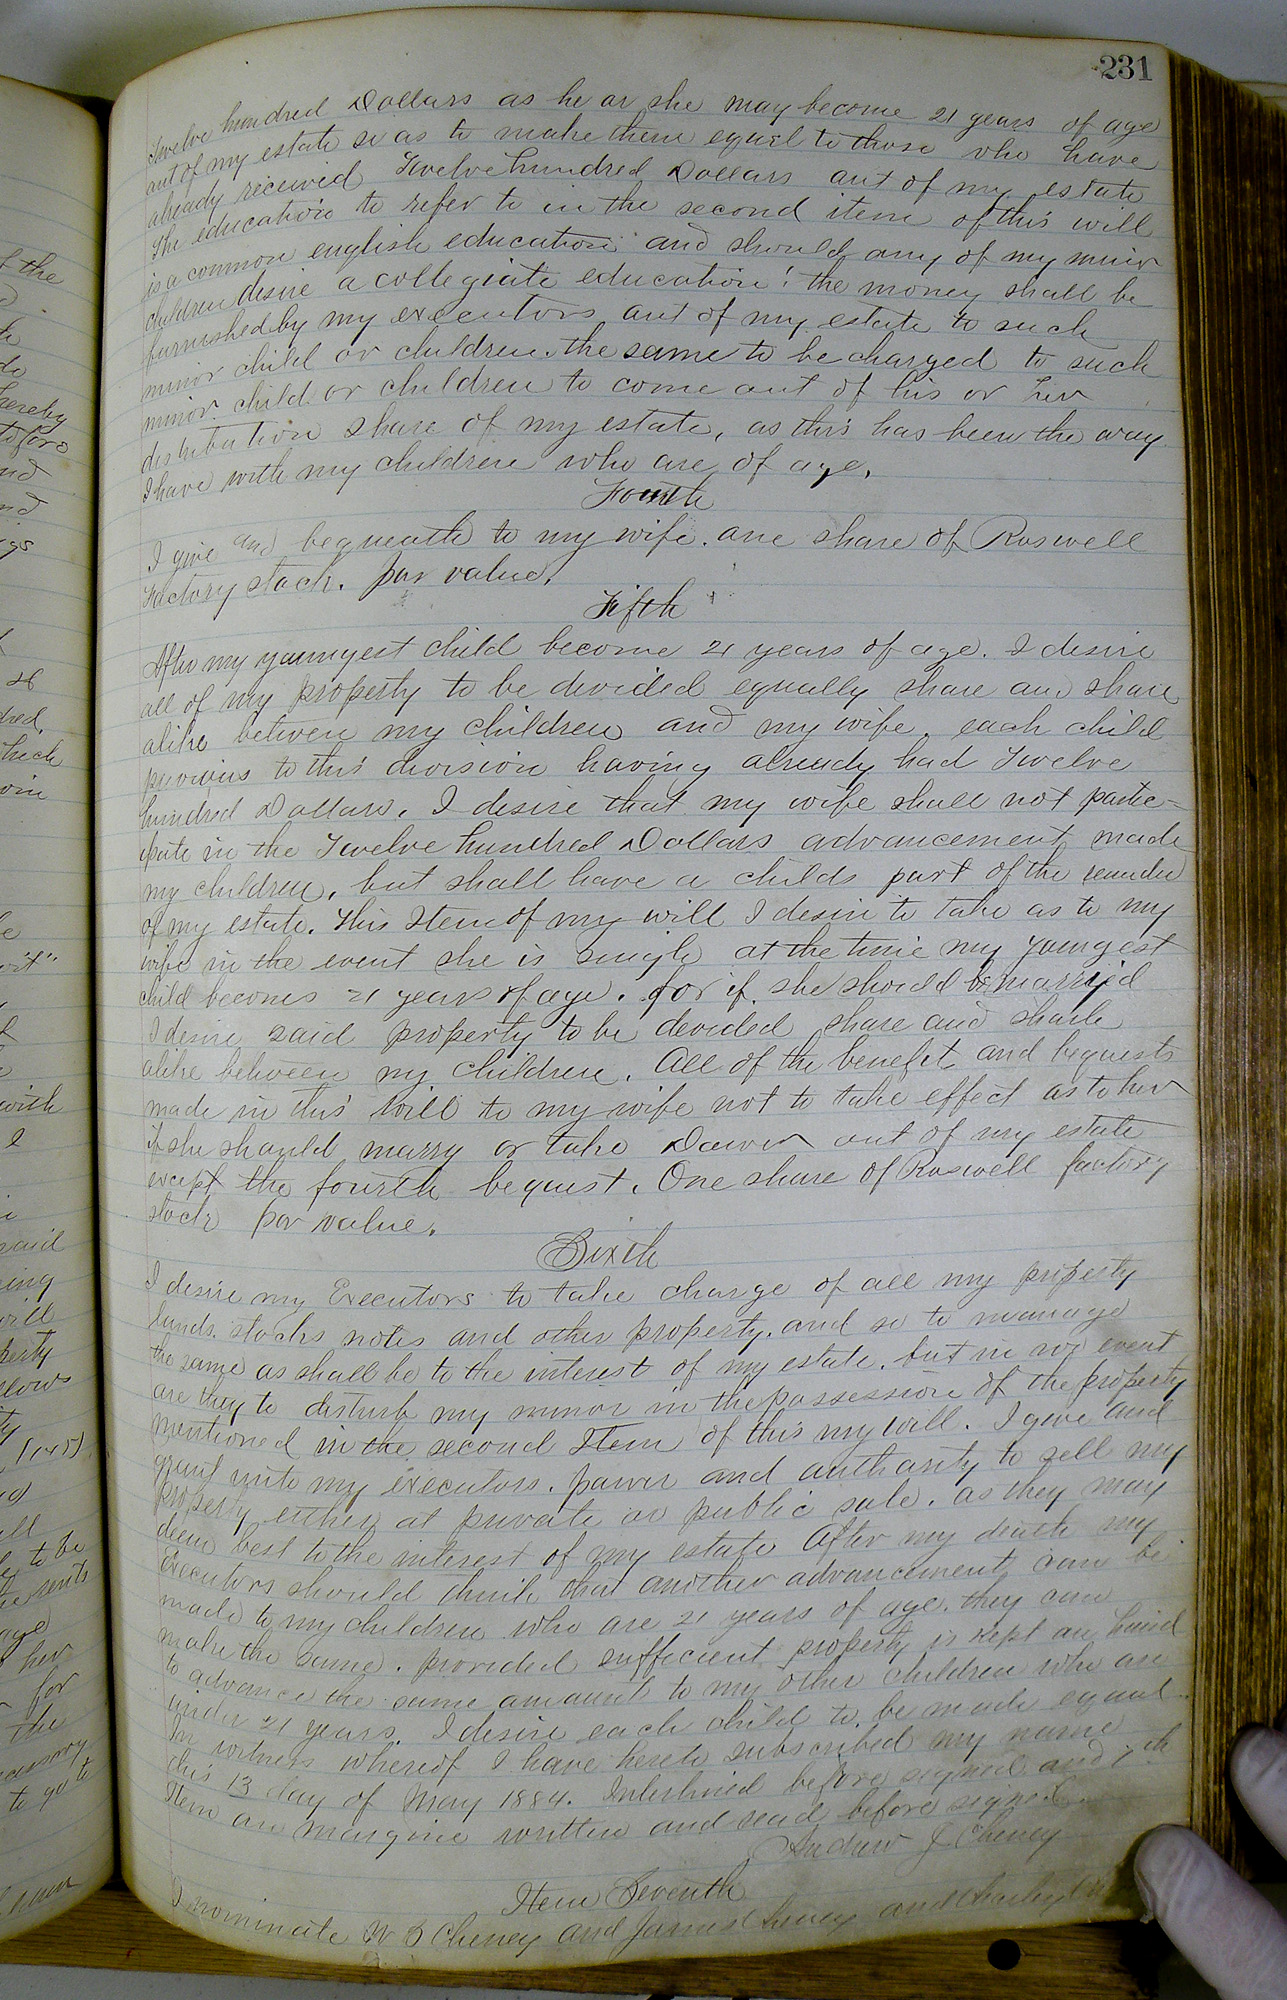 231
Twelve hundred Dollars as he or she may become 21 years of age
out of my estate so as to make them equal to those who have
already received Twelve hundred Dollars out of my estate
The education to refer to in the second item of this will
is a common english education and should any of my minor
children desire a collegiate education! the money shall be
furnished by my executors out of my estate to such
minor child or children. the same to be charged to such
minor child or children to come out of his or her
distribution share of my estate, as this has been the way
I have with my children who are of age.
Fourth
I give and bequeath to my wife. one share of Roswell
Factory stock. par value.
Fifth
After my youngest child become 21 years of age. I desire
all of my property to be divided equally share and share
alike between my children and my wife. each child
previous to this division having already had Twelve
hundred Dollars. I desire that my wife shall not partic-
ipate in the Twelve hundred Dollars advancement made
my children. but shall have a childs part of the
of my estate. This Item of my will I desire to take as to my
wife in the event she is single at the time my youngest
child becomes 21 years of age. for if she should be married
I desire said property to be devided share and share
alike between my children. All of the benefit and bequests
made in this will to my wife not to take effect as to her
if she should marry or take Dower out of my estate
except the fourth bequest. One share of Roswell factory
stock par value.
Sixth
I desire my Executors to take charge of all my property
lands. stocks notes and other property. and so to manage
the same as shall be to the interest of my estate. but in no event
are they to disturb my minor in the possession of the property
mentioned in the second Item of this my will. I give and
grant unto my executors. power and authority to sell my
property either at private or public sale. as they may
deem best to the interest of my estate After my death my
Executors should think that another advancement can be
made to my children who are 21 years of age. they can
make the same. provided sufficient property is kept on hand
to advance the same amount to my other children who are
under 21 years. I desire each child to be made equal
In witness whereof I have hereto subscribed my name
this 13 day of May 1884. Interlined before signed and 7th
Item on margine written and read before signed
Andrew J Cheney
Item Seventh
I nominate W B Cheney and James Cheney and

f the
hereby
nd
nd
dred
which
with
I
said
ing
will
perty
llows
ty
(145)
all
to be
the rents
age
her
for
the
to go to